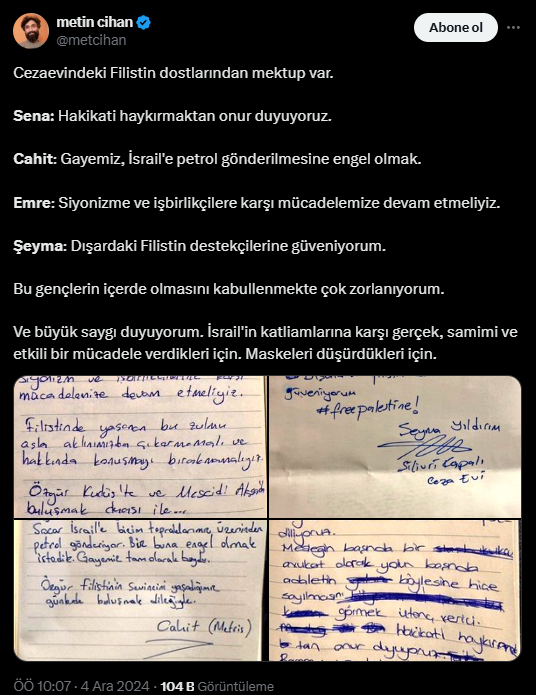 metin cihan
@metcihan
Abone ol
Cezaevindeki Filistin dostlarından mektup var.
Sena: Hakikati haykırmaktan onur duyuyoruz.
Cahit: Gayemiz, İsrail'e petrol gönderilmesine engel olmak.
Emre: Siyonizme ve işbirlikçilere karşı mücadelemize devam etmeliyiz.
Şeyma: Dışardaki Filistin destekçilerine güveniyorum.
Bu gençlerin içerde olmasını kabullenmekte çok zorlanıyorum.
Ve büyük saygı duyuyorum. İsrail'in katliamlarına karşı gerçek, samimi ve
etkili bir mücadele verdikleri için. Maskeleri düşürdükleri için.
siyonizm ve işbirlikçilerine karşı
mücadelemize devam etmeliyiz.
Filistinde yaşanan bu zulmü
asla aklımızdan çıkarmamalı ve
hakkında konuşmayı bırakmamalıyız
Özgür Kudüs'te ve Mescidi Aksa'da
buluşmak duası ile...
güveniyorum
#freepalestine!
Şeyma Yıldırım
Silivri Kapalı
Ceza Evi
Socar İsrail'e bizim topraklarımız üzerinden
petrol gönderiyor. Biz buna engel olmak
istedik. Gayemiz tam olarak buydu.
Özgür Filistin'in sevincini yaşadığımız
günlerde buluşmak dileğiyle.
Cahit (Metris)
diliyoruz.
Mesleğin başında bir
avukat olarak yolun başında
adaletin böylesine hiçe
sayılmasını
görmek utanç verici.
Hakikati haykırmak
tan onur duyuyoruz.
ÖÖ 10:07 · 4 Ara 2024 · 104 B Görüntüleme